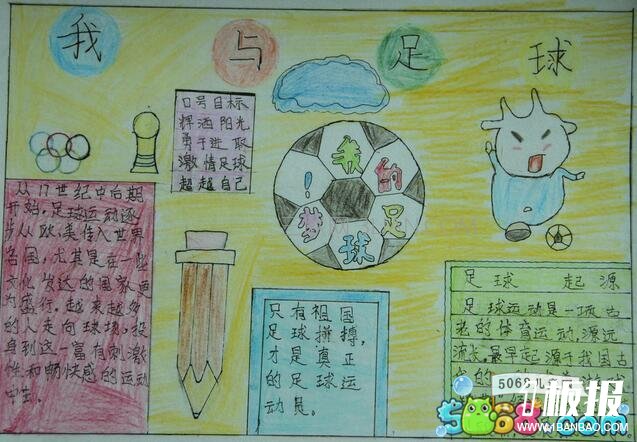 我与足球
口号目标
挥洒阳光
勇于进取
激情足球
超越自己
我的足球梦！
从17世纪中后期
开始，足球运动逐
步从欧、美传入世界
各国，尤其是在一些
文化发达的国家更
为盛行。越来越多
的人走向球场，投
身到这一富有刺激
性和畅快感的运动
中去。
只有祖国
足球拼搏，
才是真正
的足球运
动员。
足球 起源
足球运动是一项古
老的体育运动，源远
流长。最早起源于我国古
5068儿
板报
5068.com
WWW.1BANBAO.COM